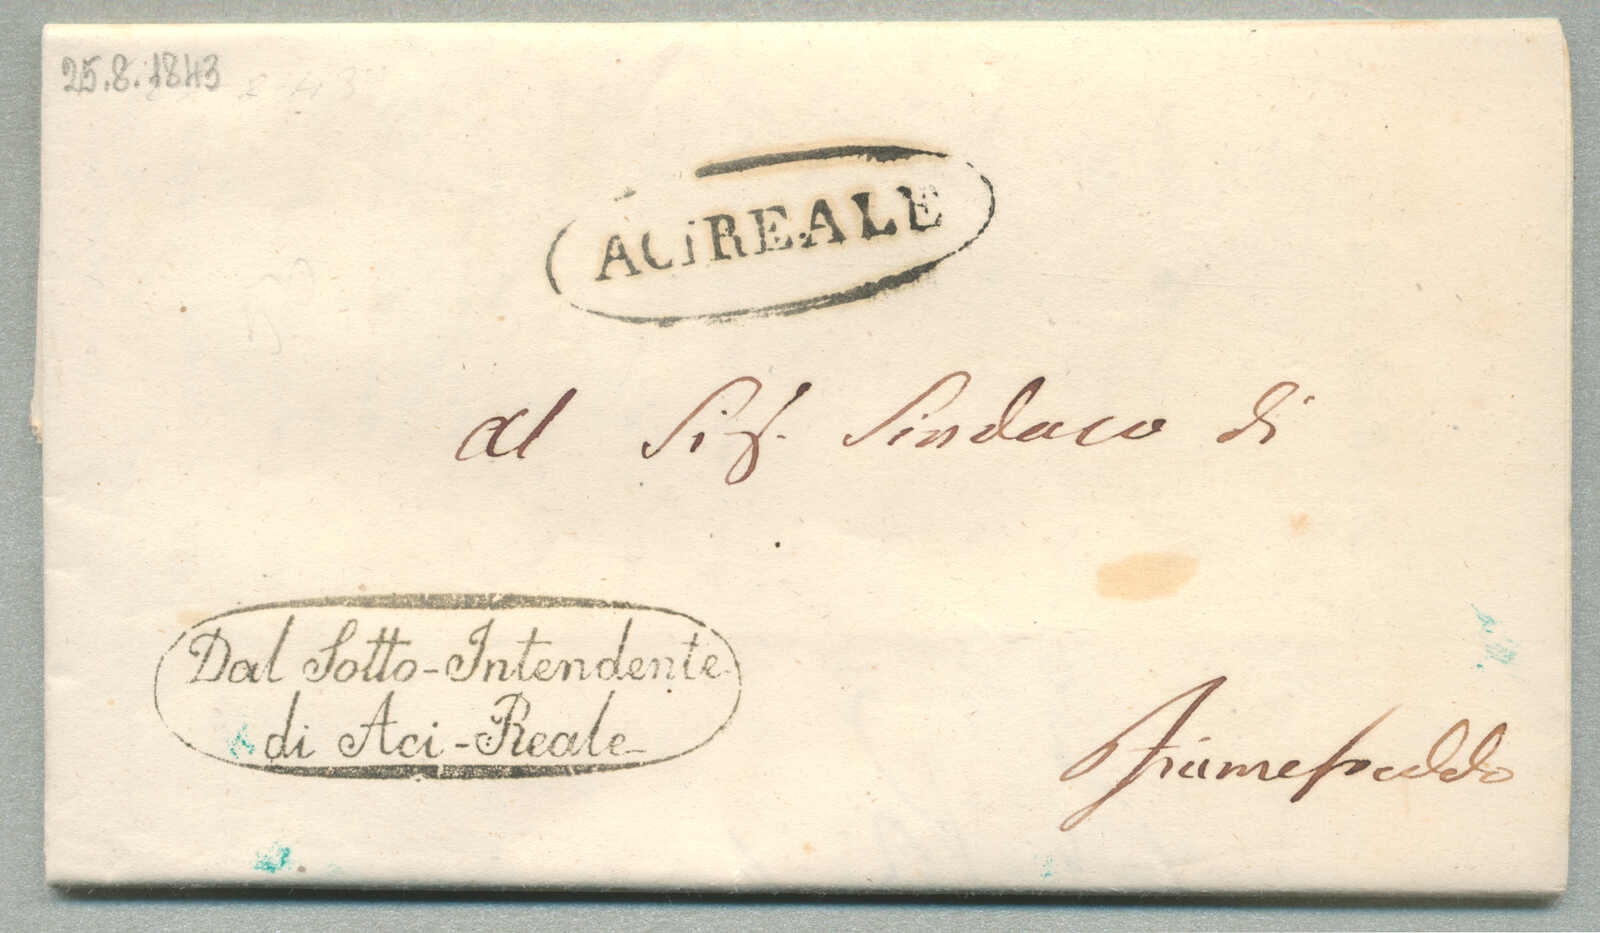 25.8.1843
ACIREALE
Al Sig. Sindaco di
Dal Sotto-Intendente
di Aci-Reale
Fiumefreddo